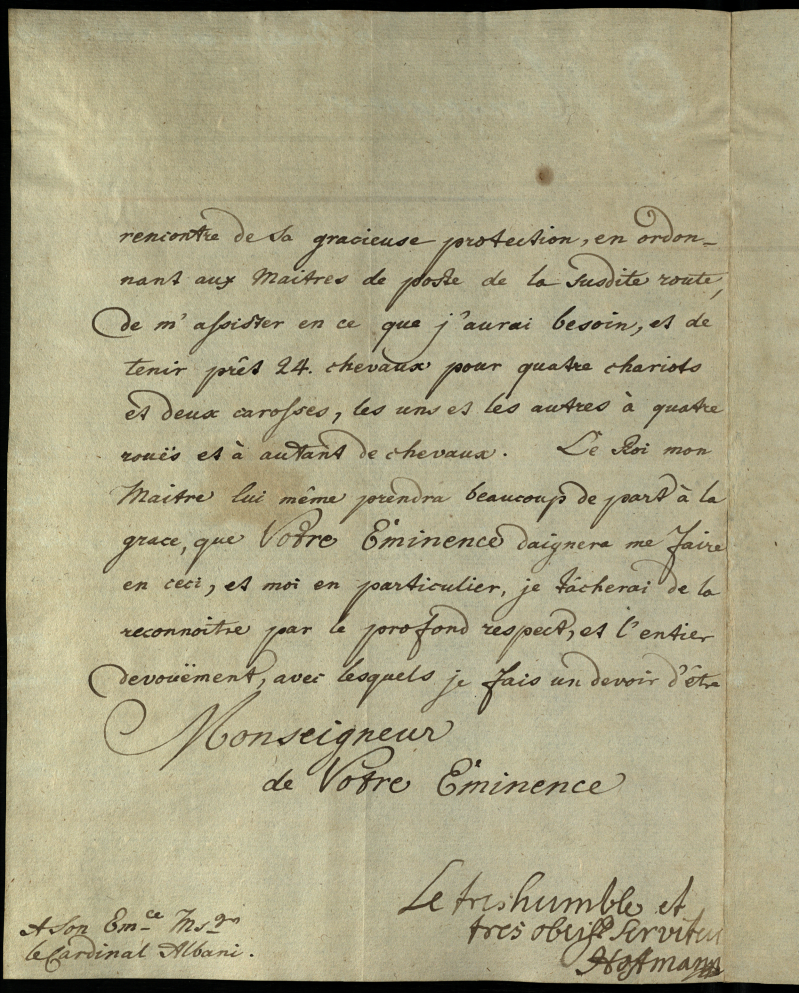 rencontre de sa gracieuse protection, en ordon-
nant aux Maitres de poste de la susdite route,
de m'assister en ce que j'aurai besoin, et de
tenir prêt 24. chevaux pour quatre chariots
et deux carosses, les uns et les autres à quatre
rouës et à autant de chevaux. Le Roi mon
Maitre lui même prendra beaucoup de part à la
grace, que Votre Eminence daignera me faire
en ceci, et moi en particulier, je tâcherai de la
reconnoitre par le profond respect, et l'entier
devouëment, avec lesquels je fais un devoir d'être
Monseigneur
de Votre Eminence
Le tres humble et
tres obeiss. serviteur
Hoffmann
A Son Em.ce Msgr
le Cardinal Albani.